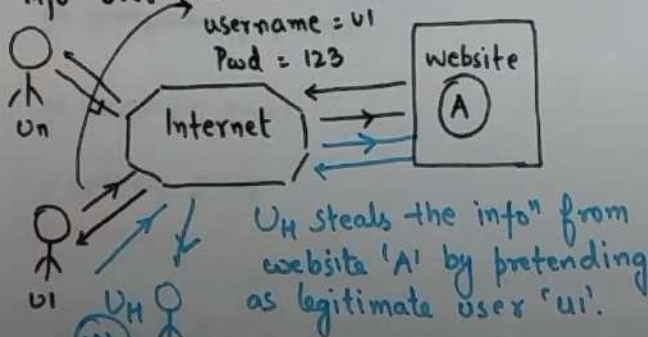 username = u1
Pwd = 123
website
A
Internet
Un
U1
UH
UH steals the infoⁿ from
website 'A' by pretending
as legitimate user 'u1'.